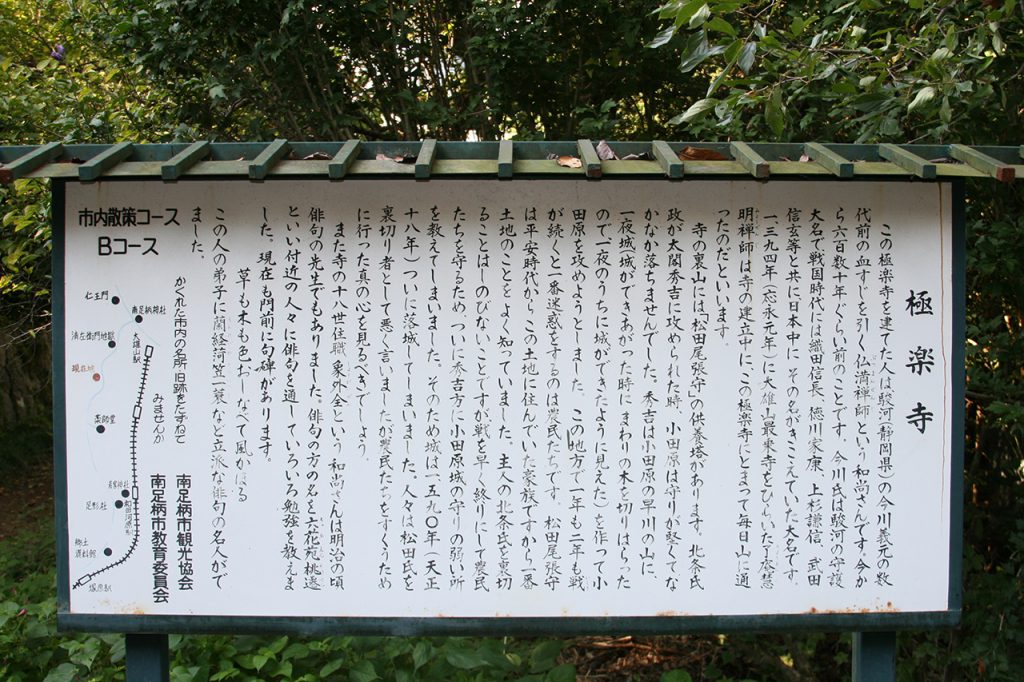 極楽寺
この極楽寺を建てた人は駿河(静岡県)の今川義元の数
代前の血すじを引く仏満禅師という和尚さんです。今か
ら六百数十年ぐらい前のことです。今川氏は駿河の守護
大名で戦国時代には織田信長、徳川家康、上杉謙信、武田
信玄等と共に日本中に、その名がきこえていた大名です。
一、三九四年(応永元年)に大雄山最乗寺をひらいた了庵慧
明禅師は寺の建立中に、この極楽寺にとまって毎日山に通
ったのだといいます。
寺の裏山には「松田尾張守」の供養塔があります。北条氏
政が太閤秀吉に攻められた時、小田原は守りが堅くてな
かなか落ちませんでした。秀吉は小田原の早川の山に、
一夜城城ができあがった時にまわりの木を切りはらった
ので一夜のうちに城ができたように見えた)を作って小
田原を攻めようとしました。この地方で一年も二年も戦
が続くと一番迷惑をするのは農民たちです。松田尾張守
は平安時代から、この土地に住んでいた家族ですから一番
土地のことをよく知っていました。主人の北条氏を裏切
ることはしのびないことですが戦を早く終りにして農民
たちを守るため、ついに秀吉方に小田原城の守りの弱い所
を教えてしまいました。そのため城は一五九〇年(天正
十八年)ついに落城してしまいました。人々は松田氏を
裏切り者として悪く言いましたが農民たちをすくうため
に行った真の心を見るべきでしょう。
また寺の十八世住職、象外全という和尚さんは明治の頃
俳句の先生でもありました。俳句の方の名を六花苑桃逕
といい付近の人々に俳句を通していろいろ勉強を教えま
した。現在も門前に句碑があります。
草も木も色おしなべて風かほる
この人の弟子に蘭経、荷笠、一蓑など立派な俳句の名人がで
ました。
市内散策コース
Bコース
かくれた市内の名所旧跡をたずねて
みませんか
南足柄市観光協会
南足柄市教育委員会
仁王門
南足柄神社
大雄山駅
清左衛門地獄
現在地
薬師堂
足形社
和田河原駅
郷土
資料館
塚原駅